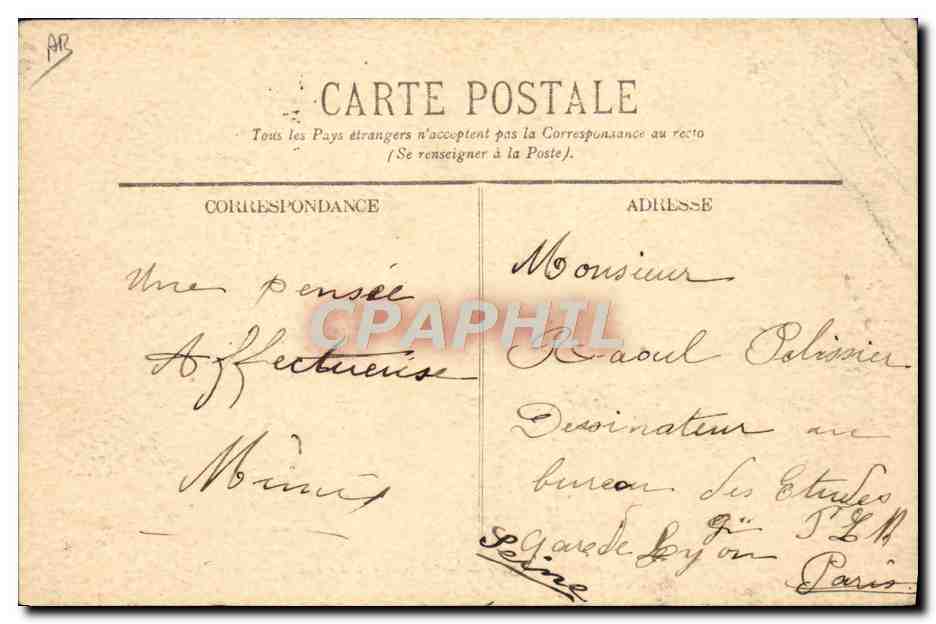 AB
CARTE POSTALE
Tous les Pays étrangers n'acceptent pas la Correspondance au recto
(Se renseigner à la Poste).
CORRESPONDANCE
Une pensée
Affectueuse
Mimi
ADRESSE
Monsieur
Raoul Pelissier
Dessinateur au
bureau des Etudes
Gare de Lyon Cie P L M
Seine
Paris
CPAPHIL